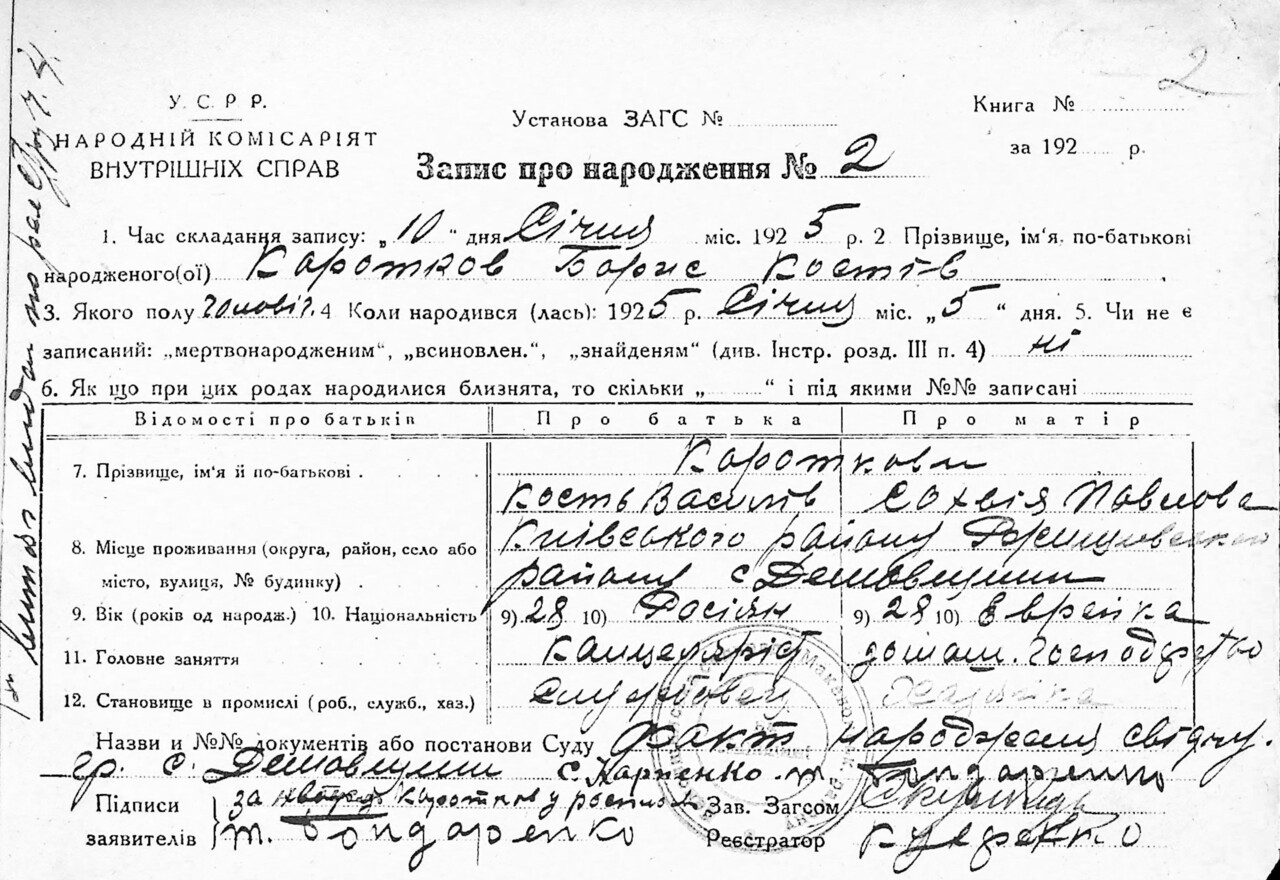 2
У. С. Р Р.
НАРОДНІЙ КОМІСАРІЯТ
ВНУТРІШНІХ СПРАВ
Установа ЗАГС №
Книга №
за 192 р.
Запис про народження № 2
1. Час складання запису: „ 10 “ дня Січня міс. 192 5 р. 2 Прізвище, ім‘я, по-батькові
народженого(ої) Коротков Борис Костів
3. Якого полу чоловіч. 4 Коли народився (лась): 192 5 р. Січня міс. „ 5 “ дня. 5. Чи не є
записаний: „мертвонародженим“, „всиновлен.“, „знайденям“ (див. Інстр. розд. III п. 4) ні
6. Як що при цих родах народилися близнята, то скільки „ “ і під якими №№ записані
Відомості про батьків Про батька Про матір
7. Прізвище, ім‘я й по-батькові . Короткови
Кость Васильів Сохвія Павлова
8. Місце проживання (округа, район, село або Київського району
місто, вулиця, № будинку) . району с
9. Вік (років од народж.) 10. Національність 9) 28 10) Росіян 9) 28 10) Еврейка
11. Головне заняття Канцелярист домаш. господарство
12. Становище в промислі (роб., служб., хаз.) Службовец Хазяйка
Назви и №№ документів або постанови Суду Факт народженя свідчу.
гр. с. С. Карпенко т. Бондаренко
Підписи за Короткову
заявителів т. Бондаренко
Зав. Загсом
Реєстратор